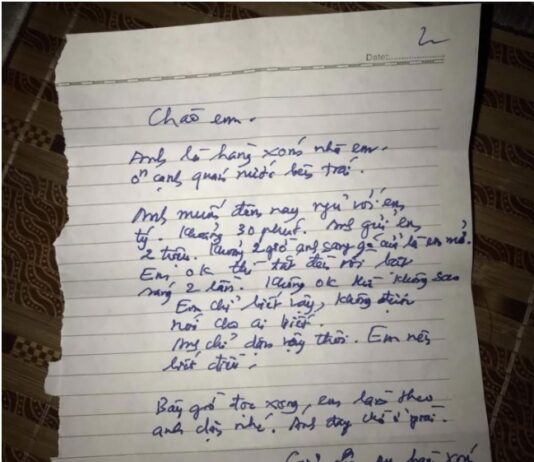 2
Date:
Chào em.
Anh là hàng xóm nhà em.
ở cạnh quán nước bên trái.
Anh muốn đêm nay ngủ với em
tý. Khoảng 30 phút. Anh gửi em
2 triệu. Khoảng 2 giờ anh sang gõ cửa là em mở.
Em ok thì tắt đèn rồi bật
sáng 2 lần. Không ok thì không sao
Em chỉ biết vậy, không được
nói cho ai biết.
Anh chỉ dặn vậy thôi. Em nên
biết điều.
Bây giờ đọc xong, em làm theo
anh dặn nhé. Anh đang chờ ở